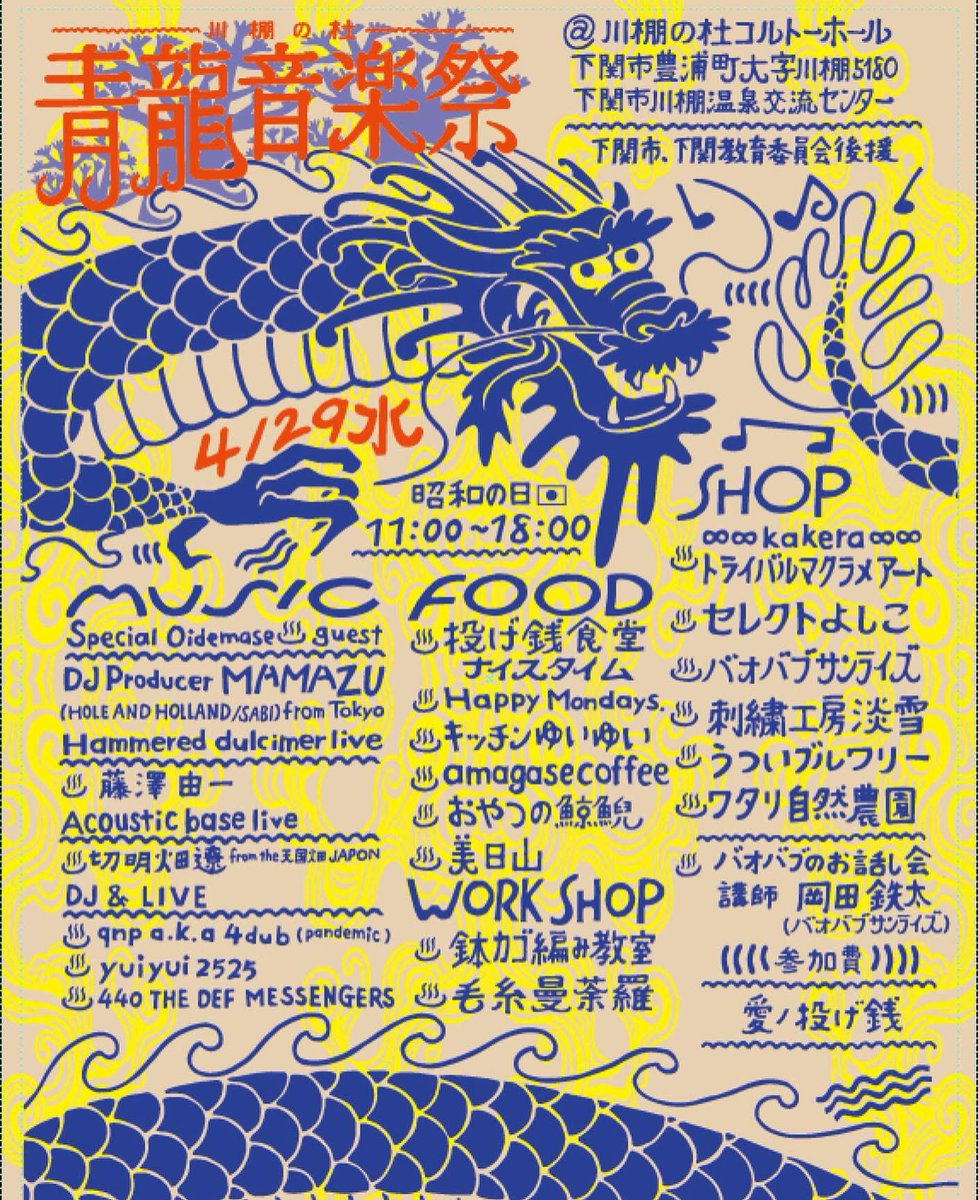 川棚の杜
青龍音楽祭
@川棚の杜コルトーホール
下関市豊浦町大字川棚5180
下関市川棚温泉交流センター
下関市、下関教育委員会後援
4/29水
昭和の日
11:00~18:00
MUSIC
Special Oidemase♨guest
DJ Producer MAMAZU
(HOLE AND HOLLAND/SABI) from Tokyo
Hammered dulcimer live
♨藤澤由一
Acoustic base live
♨切明畑遼 from the 天国畑 JAPON
DJ & LIVE
♨qnp a.k.a 4dub (pandemic)
♨yuiyui2525
♨440 THE DEF MESSENGERS
FOOD
♨投げ銭食堂
ナイスタイム
♨Happy Mondays.
♨キッチンゆいゆい
♨amagasecoffee
♨おやつの鯨鯢
♨美日山
WORK SHOP
♨鉢カゴ編み教室
♨毛糸曼荼羅
SHOP
∞∞kakera∞∞
♨トライバルマクラメアート
♨セレクトよしこ
♨バオバブサンライズ
♨刺繍工房淡雪
♨うついブルワリー
♨ワタリ自然農園
♨バオバブのお話し会
講師 岡田鉄太
(バオバブサンライズ)
((((参加費))))
愛ノ投げ銭